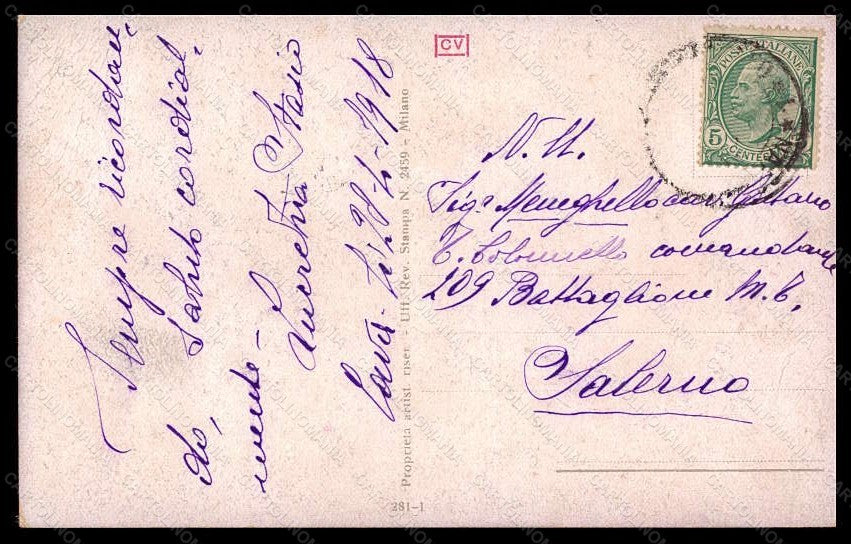 Sempre ricordan-
do, saluto cordial-
mente -
Lucrezia Stasio
Cava - li, 28-2-1918
CV
Proprietà artist. riser. - Uff. Rev. Stampa N. 2459 - Milano
281-1
POSTE ITALIANE
5
CENTESIMI
N. H.
Sigr Meneghello cav. Gaetano
T. Colonnello comandante
209 Battaglione M. T.
Salerno
CARTOLINOMANIA